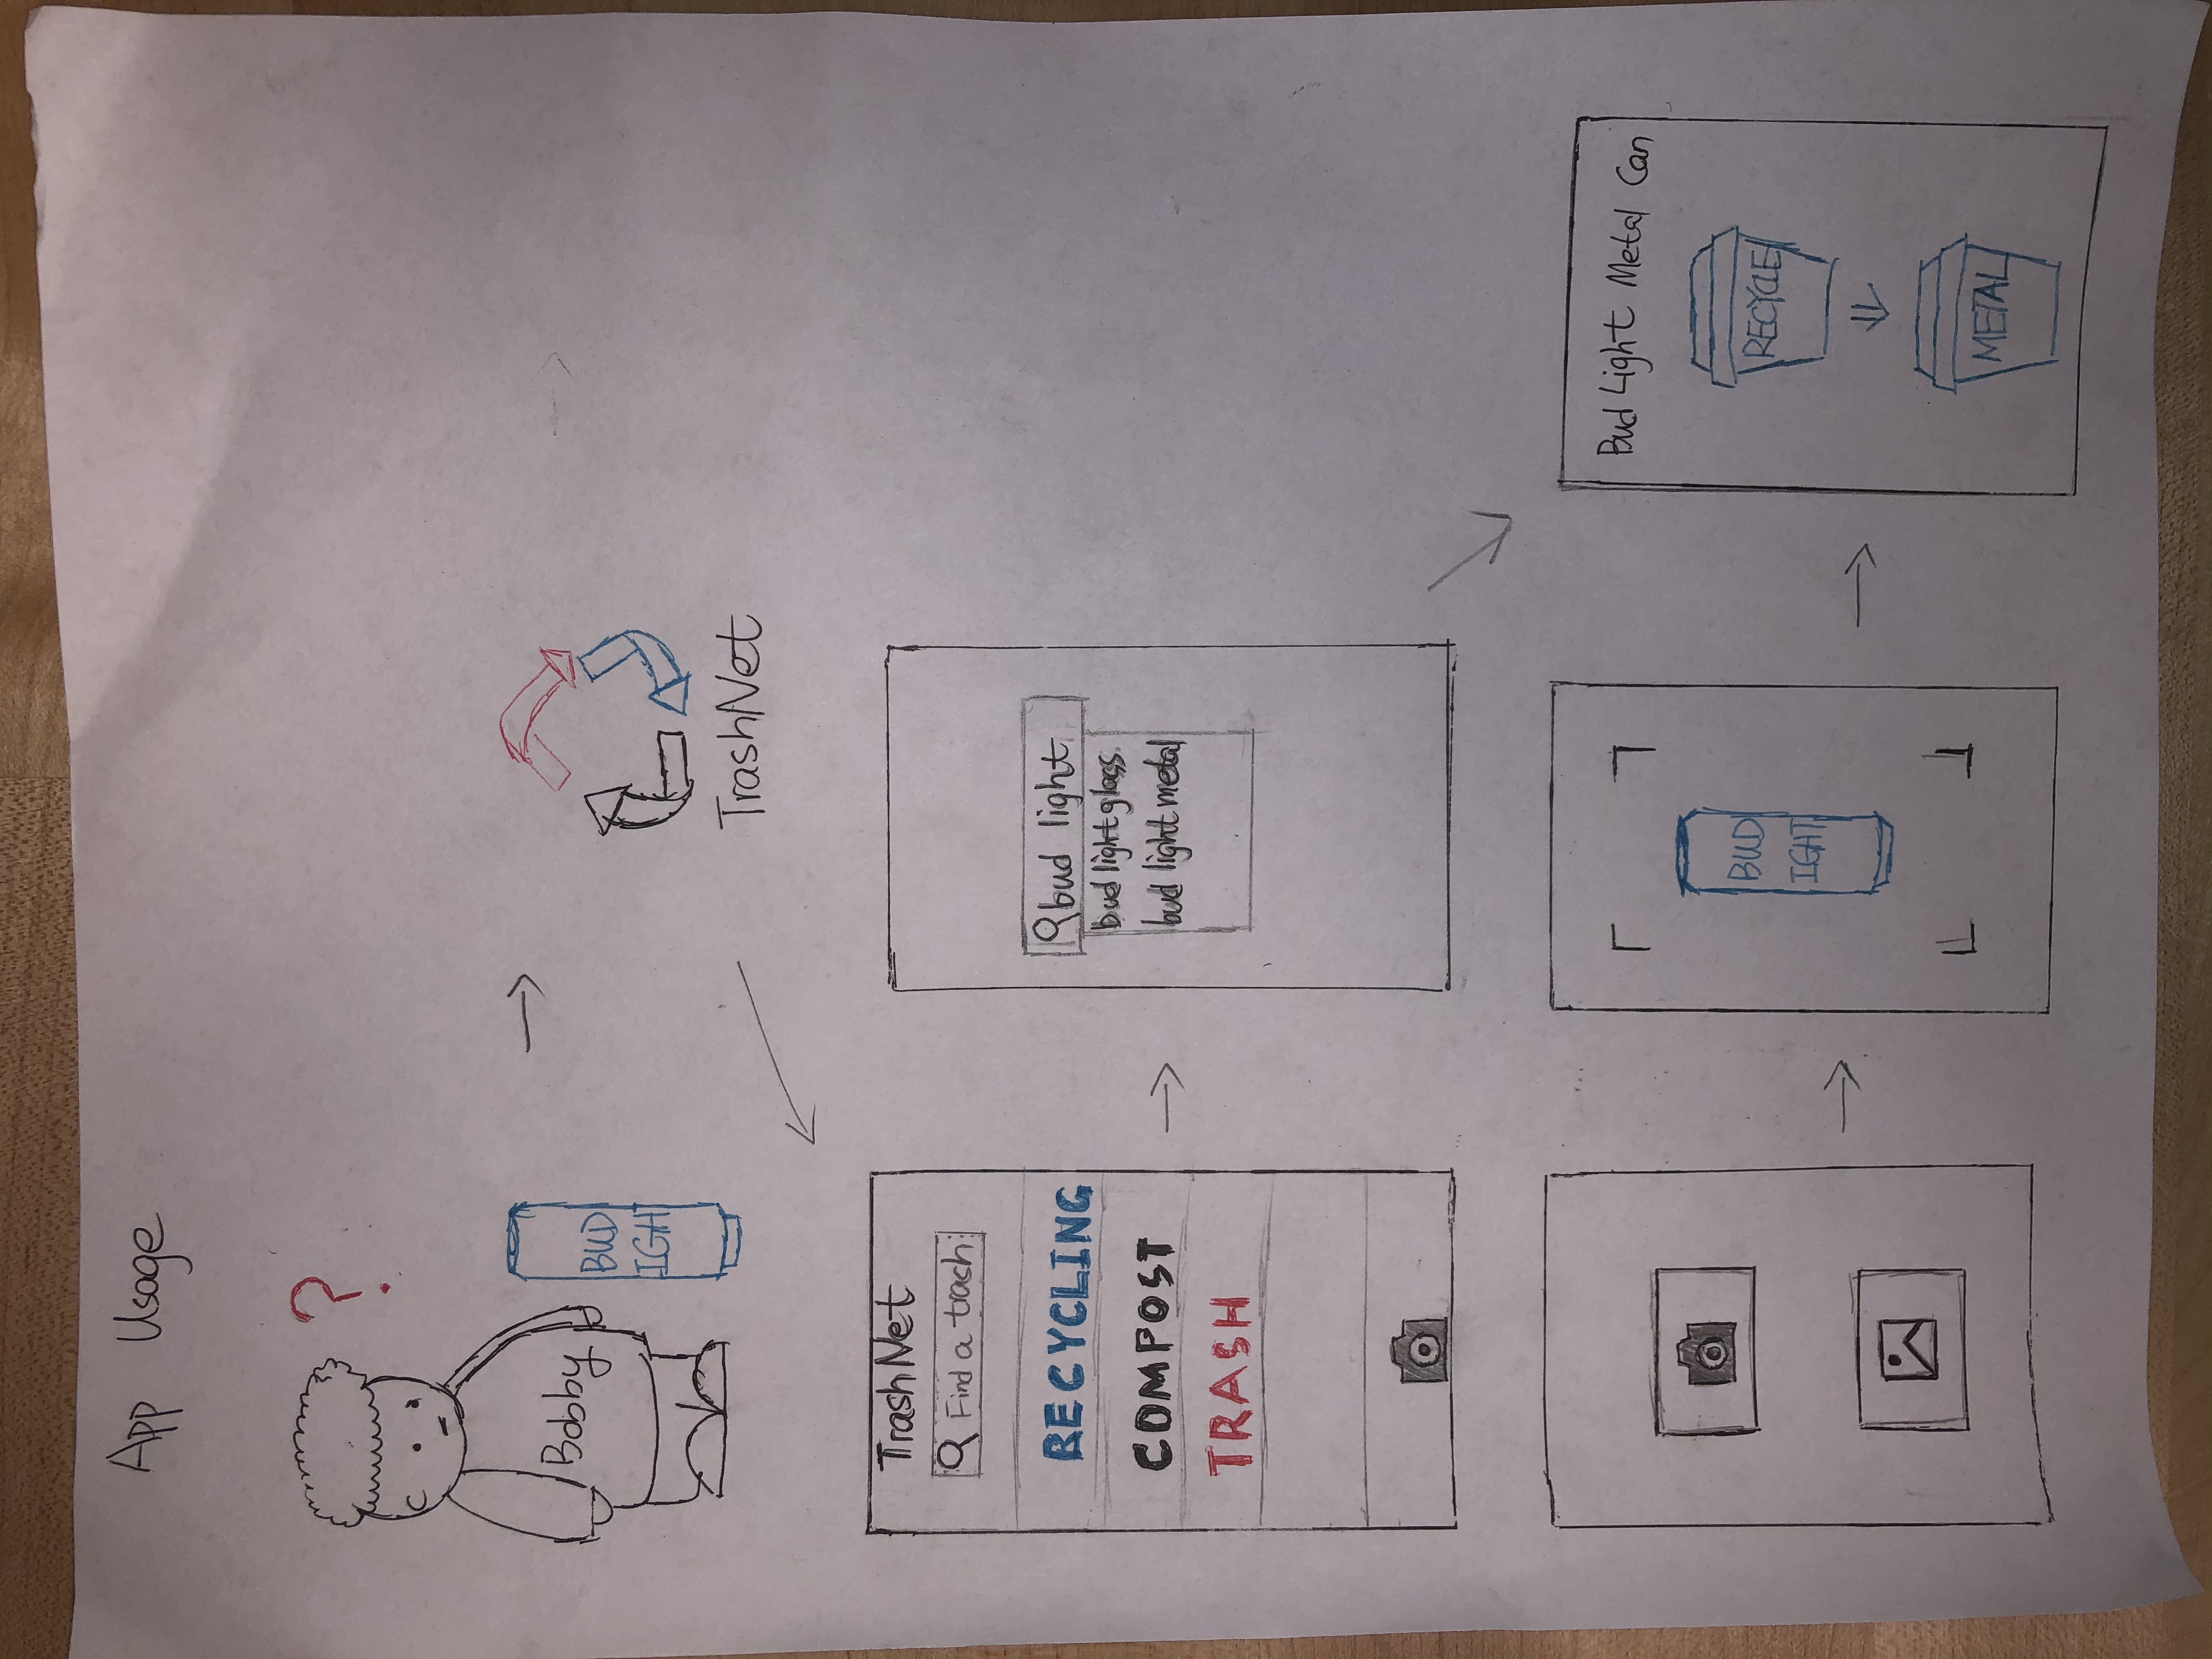 App Usage
?
Bobby
BUD
IGHT
TrashNet
TrashNet
Find a trash
RECYCLING
COMPOST
TRASH
bud light
bud light glass
bud light metal
BUD
IGHT
Bud Light Metal Can
RECYCLE
METAL